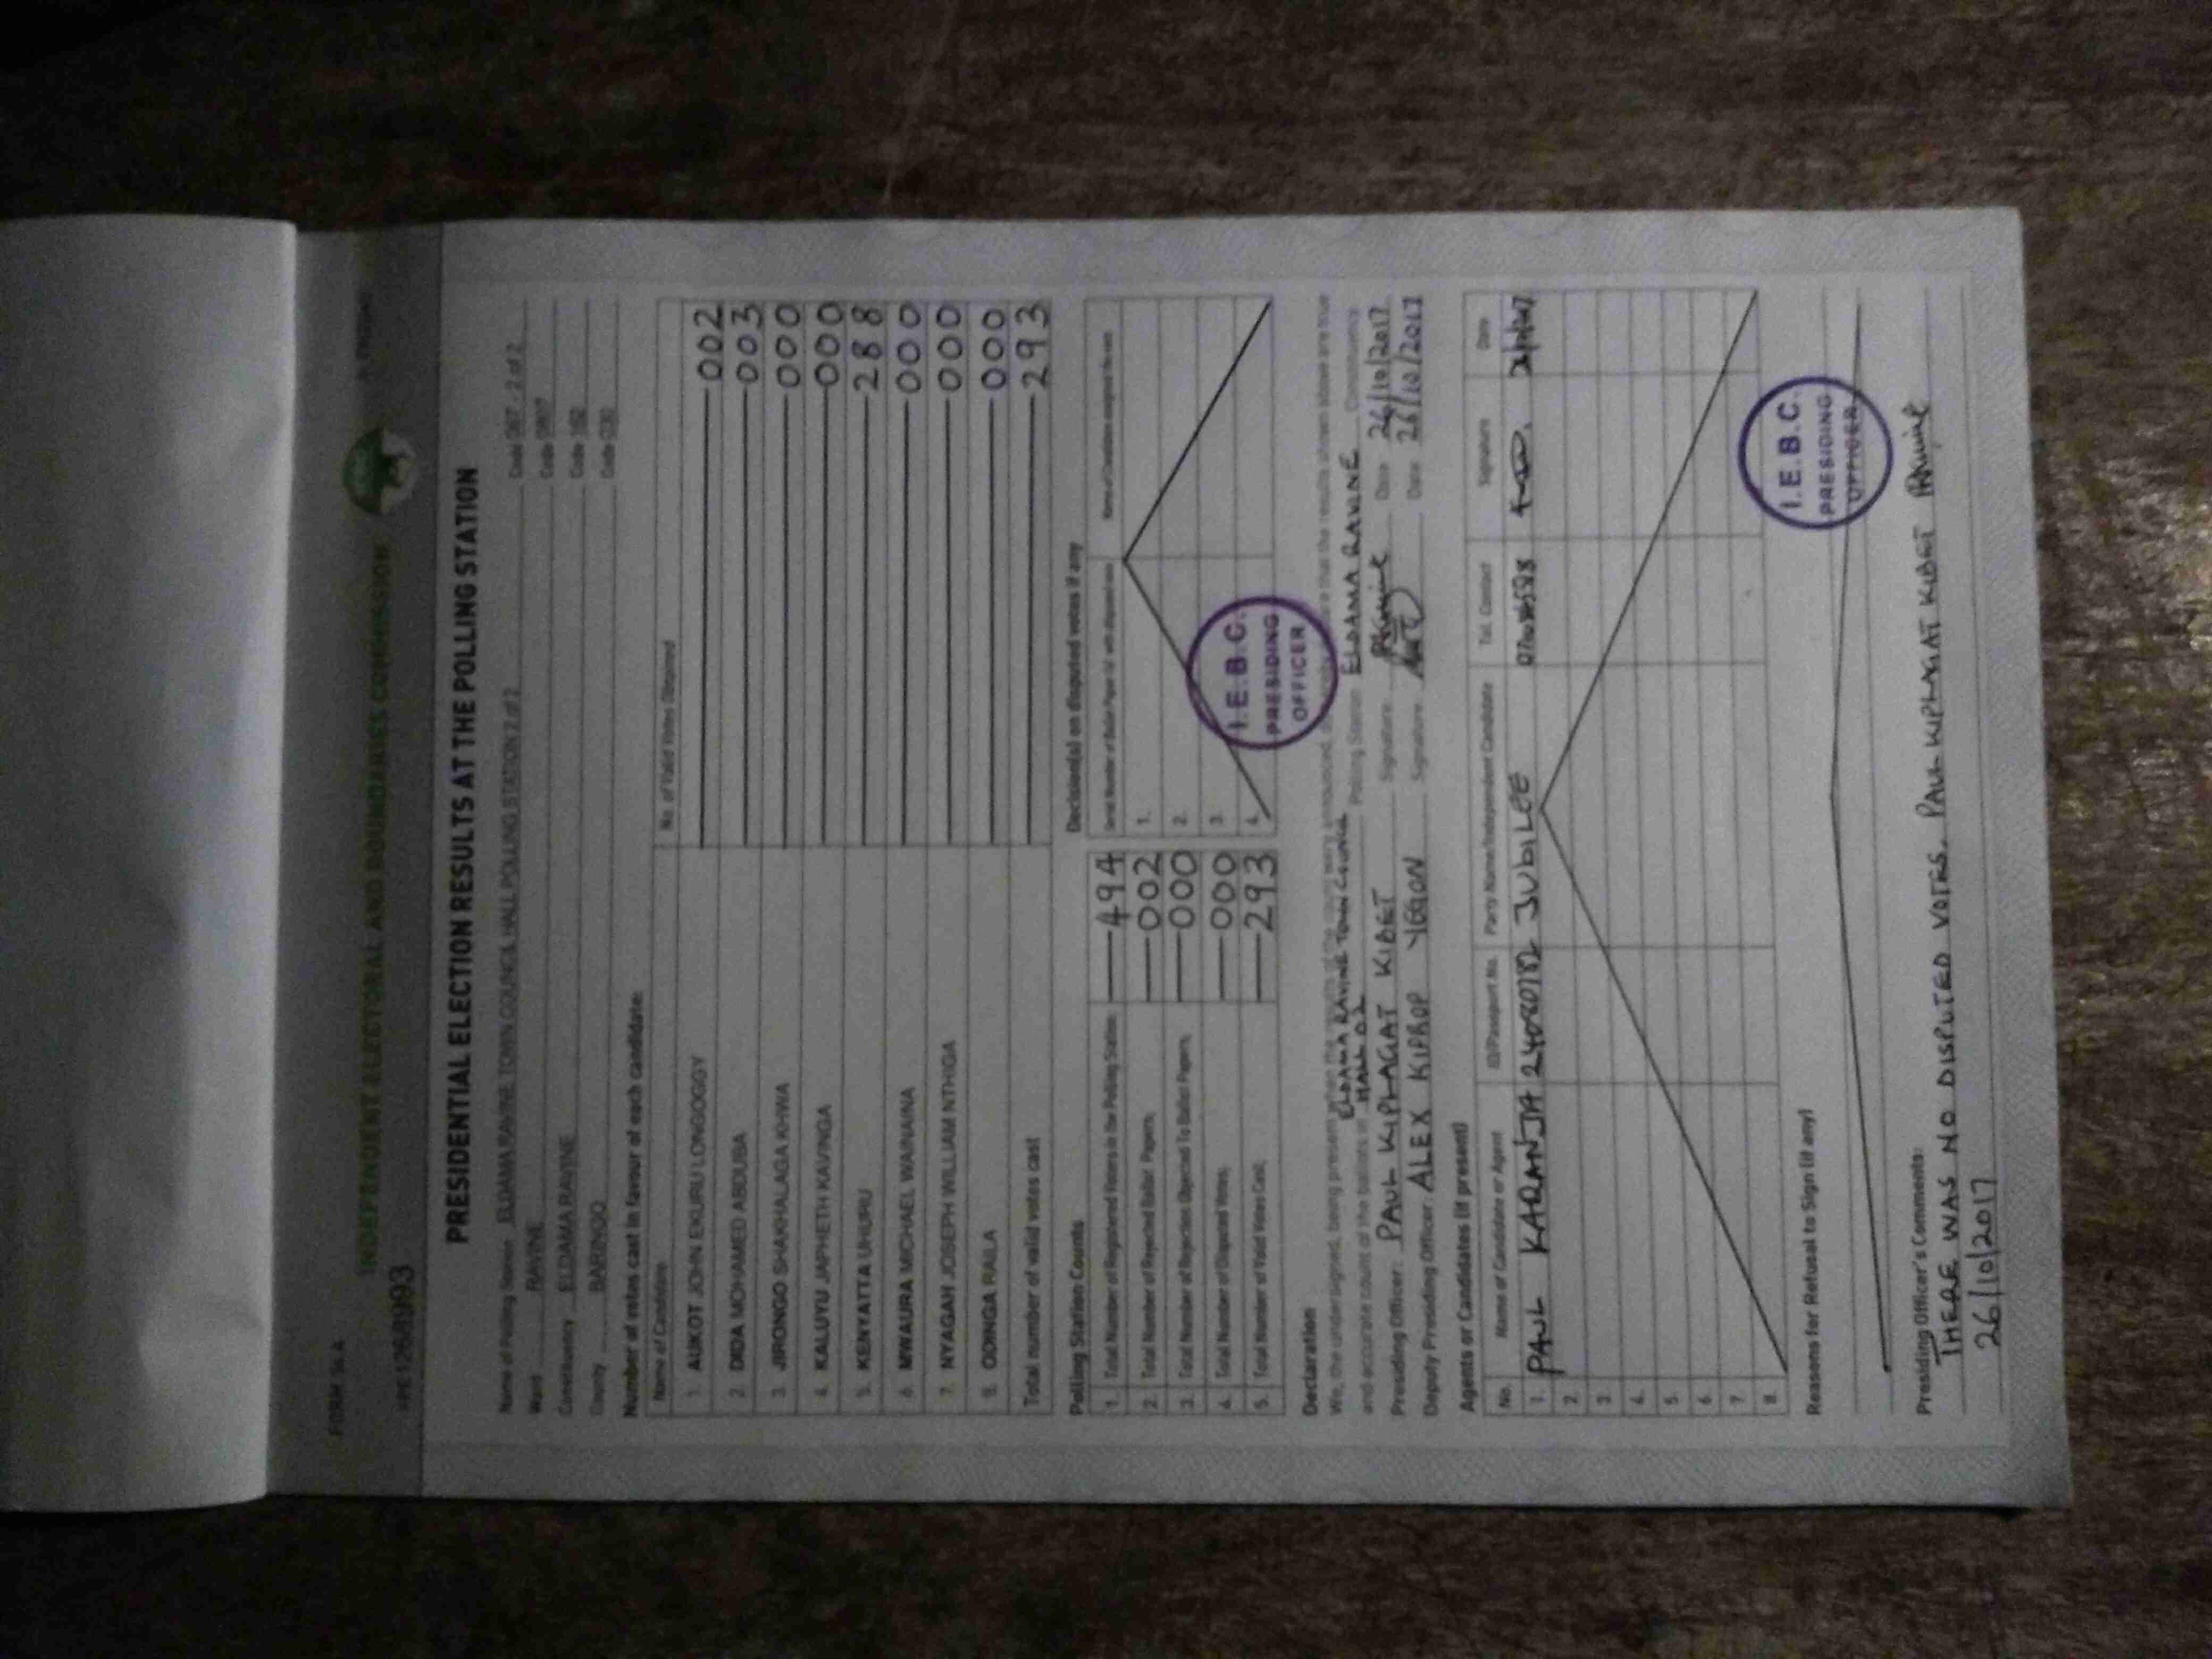 FORM 34 A
INDEPENDENT ELECTORAL AND BOUNDARIES COMMISSION
PRESIDENTIAL ELECTION RESULTS AT THE POLLING STATION
Name of Polling Station ELDAMA RAVINE TOWN COUNCIL HALL POLLING STATION 2 of 2 Code 067 - 2 of 2
Ward RAVINE Code
Constituency ELDAMA RAVINE Code 162
County BARINGO Code 030
Number of votes cast in favour of each candidate:
Name of Candidate No. of Valid Votes Obtained
1. AUKOT JOHN EKURU LONGOGGY 002
2. DIDA MOHAMED ABDUBA 003
3. JIRONGO SHAKHALAGA KHWA 000
4. KALUYU JAPHETH KAVINGA 000
5. KENYATTA UHURU 288
6. MWAURA MICHAEL WAINAINA 000
7. NYAGAH JOSEPH WILLIAM NTHIGA 000
8. ODINGA RAILA 000
Total number of valid votes cast 293
Polling Station Counts
1. Total Number of Registered Voters in the Polling Station 494
2. Total Number of Rejected Ballot Papers 002
3. Total Number of Rejection Objected To Ballot Papers 000
4. Total Number of Disputed Votes 000
5. Total Number of Valid Votes Cast 293
Decision(s) on disputed votes if any
1.
2.
3.
4.
I.E.B.C.
PRESIDING
OFFICER
Declaration
We, the undersigned, being present when the results of the count were announced, that the results shown above are true
and accurate count of the ballots in ELDAMA RAVINE TOWN COUNCIL HALL 02 Polling Station ELDAMA RAVINE Constituency
Presiding Officer: PAUL KIPLAGAT KIBET Signature Date 26/10/2017
Deputy Presiding Officer: ALEX KIPROP YEGON Signature Date 26/10/2017
Agents or Candidates (if present)
No. Name of Candidate or Agent ID/Passport No. Party Name/Independent Candidate Tel. Contact Signature Date
1. PAUL KARANJA JUBILEE
2.
3.
4.
5.
6.
7.
8.
I.E.B.C.
PRESIDING
OFFICER
Reasons for Refusal to Sign (if any)
Presiding Officer's Comments:
THERE WAS NO DISPUTED VOTES. PAUL KIPLAGAT KIBET
26/10/2017